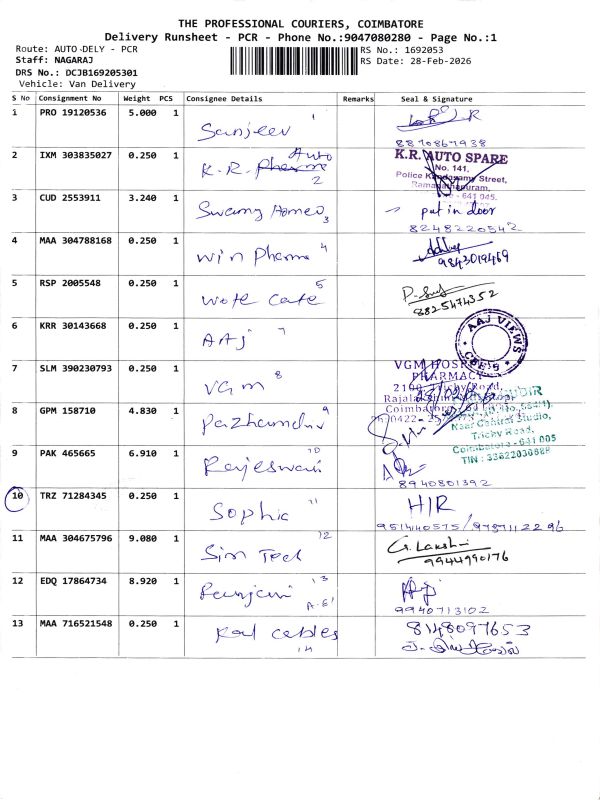 THE PROFESSIONAL COURIERS, COIMBATORE
Delivery Runsheet - PCR - Phone No.:9047080280 - Page No.:1
Route: AUTO DELY - PCR RS No.: 1692053
Staff: NAGARAJ RS Date: 28-Feb-2026
DRS No.: DCJB169205301
Vehicle: Van Delivery
S No Consignment No Weight PCS Consignee Details Remarks Seal & Signature
1 PRO 19120536 5.000 1 Sanjeev 1
8870867938
2 IXM 303835027 0.250 1 K.R. Pharma Auto 2 K.R. AUTO SPARE
No. 141,
Police Kandasamy Street,
Ramanathapuram,
641 045.
3 CUD 2553911 3.240 1 Swamy Homeo 3 put in door
8248220542
4 MAA 304788168 0.250 1 Win Pharma 4
9843019469
5 RSP 2005548 0.250 1 Wote Cafe 5
8825474352
6 KRR 30143668 0.250 1 AAJ 7 AAJ VIEWS
CBE
7 SLM 390230793 0.250 1 VGM 8 VGM HOSPITAL
PHARMACY
2100, Trichy Road,
Coimbatore
8 GPM 158710 4.830 1 Pazhamudir 9
Near Central Studio,
Trichy Road,
Coimbatore - 641 005
9 PAK 465665 6.910 1 Rajeswari 10
8940801392
10 TRZ 71284345 0.250 1 Sophia 11 H/R
11 MAA 304675796 9.080 1 Sim Tech 12 G. Lakshmi
9944990176
12 EDQ 17864734 8.920 1 13
9940713102
13 MAA 716521548 0.250 1 Kal cables 14 8148097653